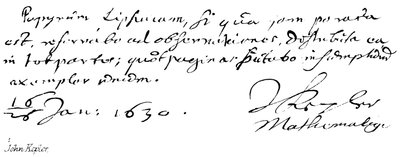 Papyrum Lipsicam, si qua jam parata
est, reservabo ad observationes, distributa ea
in tot partes; quot paginas habebo in
exemplar unum.
16/26 Jan: 1630. J Kepler
Mathematicus
John Kepler.